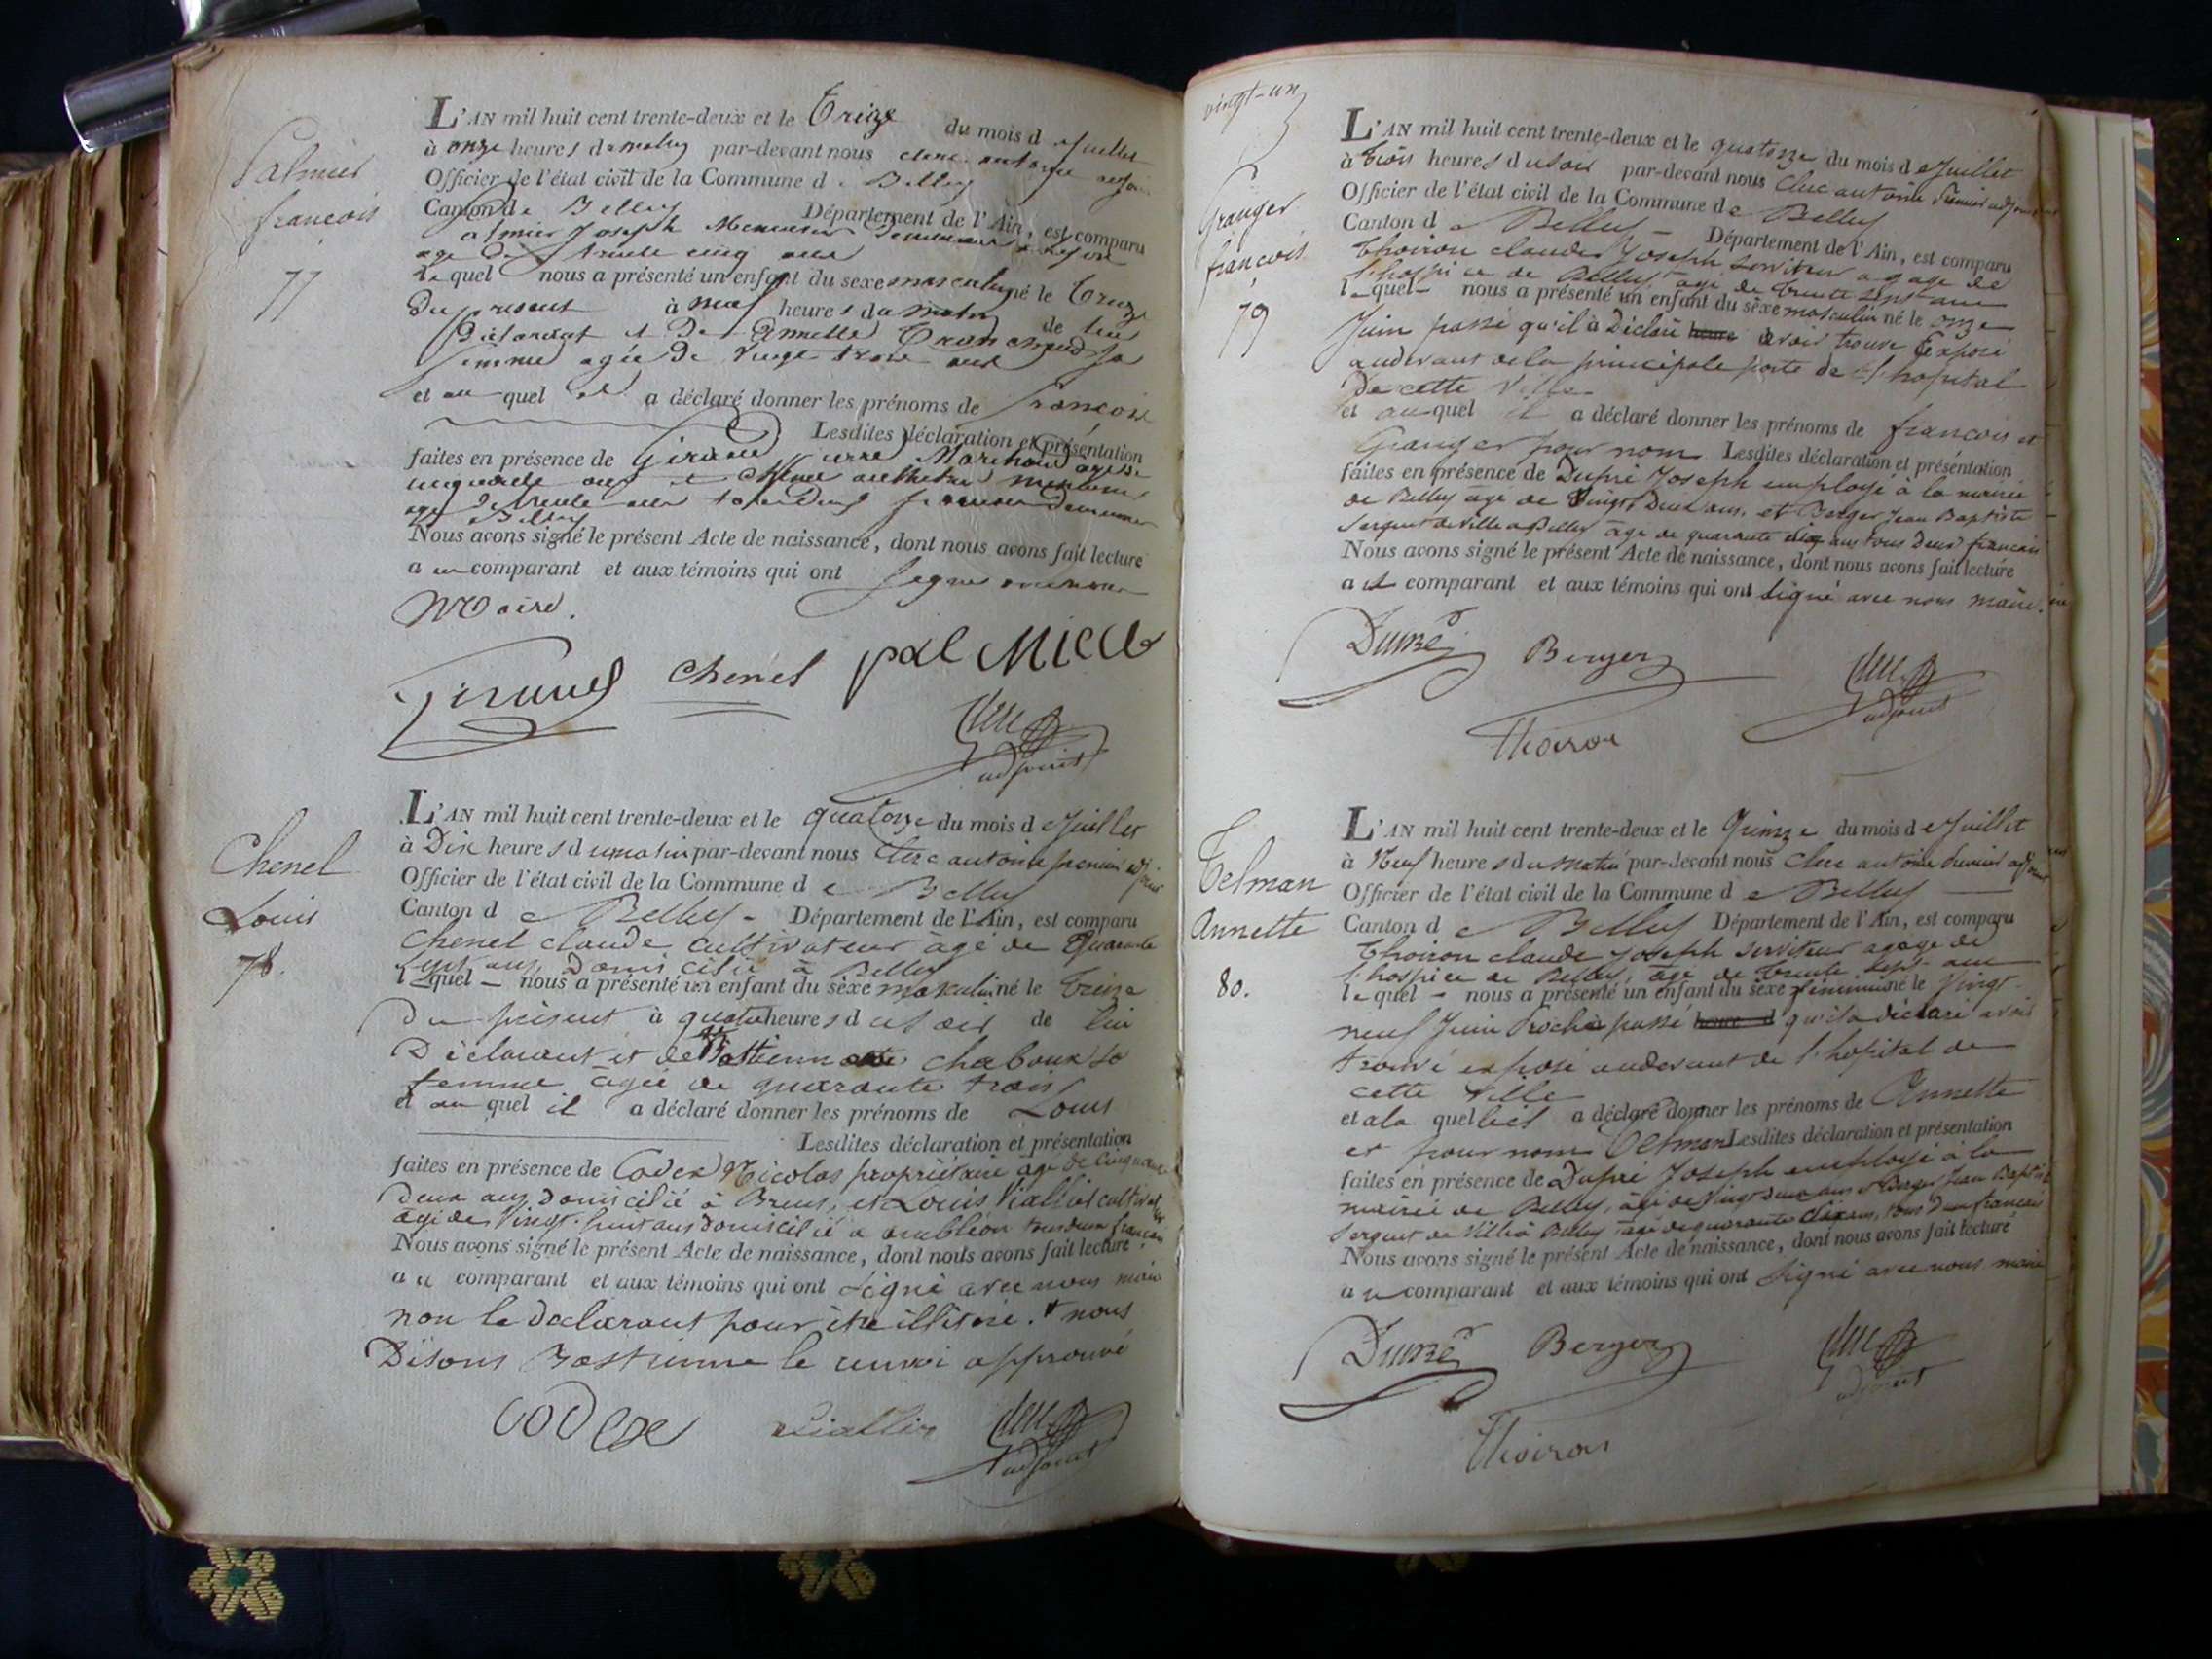 Palmier
francois
77
L'AN mil huit cent trente-deux et le Treize du mois de Juillet
à onze heures du matin par-devant nous antoine
Officier de l'état civil de la Commune de Belley
Canton de Belley Département de l'Ain, est comparu
palmier Joseph Menuisier
age de trente cinq ans
Lequel nous a présenté un enfant du sexe masculin né le Treize
Du présent à neuf heures du matin de lui
Déclarant et De Annette sa
femme agée De vingt trois ans
et au quel il a déclaré donner les prénoms de françois
Lesdites déclaration et présentation
faites en présence de Giraud pierre Marchand agé de
cinquante ans et Chenel
agé de trente ans tous Deux
a Belley
Nous avons signé le présent Acte de naissance, dont nous avons fait lecture
au comparant et aux témoins qui ont signé avec nous
Maire.
Giraud Chenel palmier
Clerc
adjoint
Chenel
Louis
78.
L'AN mil huit cent trente-deux et le quatorze du mois de Juillet
à Dix heures du matin par-devant nous Clerc antoine premier adjoint
Officier de l'état civil de la Commune de Belley
Canton de Belley - Département de l'Ain, est comparu
Chenel claude cultivateur âgé de quarante
sept ans Domicilié à Belley
lequel - nous a présenté un enfant du sexe masculin né le treize
Du présent à quatre heures du soir de lui
Déclarant et de chaboux sa
femme âgée de quarante trois
et au quel il a déclaré donner les prénoms de Louis
Lesdites déclaration et présentation
faites en présence de Codex Nicolas propriétaire agé de cinquante
Deux ans domicilié à Brens, et Louis Viallier cultivateur
âgé de vingt-huit ans domicilié a tous deux français
Nous avons signé le présent Acte de naissance, dont nous avons fait lecture
au comparant et aux témoins qui ont signé avec nous maire
non le déclarant pour être illitéré. + nous
Disons Bastienne le renvoi approuvé
Codex Viallier Clerc
adjoint
vingt-un
Granger
françois
79
L'AN mil huit cent trente-deux et le quatorze du mois de Juillet
à trois heures du soir par-devant nous Clerc antoine premier adjoint
Officier de l'état civil de la Commune de Belley
Canton de Belley - Département de l'Ain, est comparu
Thoiron claude Joseph serviteur a gage de
l'hospice de Belley, agé de trente sept ans
lequel - nous a présenté un enfant du sexe masculin né le onze
Juin passé qu'il à Déclaré heure avoir trouvé Exposé
audevant de la principale porte de l'hopital
De cette Ville
et auquel il a déclaré donner les prénoms de françois et
Granger pour nom Lesdites déclaration et présentation
faites en présence de Dupré Joseph employé à la mairie
de Belley agé de vingt Deux ans, et Berger Jean Baptiste
Sergent de ville a Belley âgé de quarante ans tous Deux français
Nous avons signé le présent Acte de naissance, dont nous avons fait lecture
au comparant et aux témoins qui ont signé avec nous maire.
Dupré Berger Clerc
adjoint
Thoiron
Telman
Annette
80.
L'AN mil huit cent trente-deux et le Quinze du mois de Juillet
à Neuf heures du matin par-devant nous Clerc antoine premier adjoint
Officier de l'état civil de la Commune de Belley
Canton de Belley Département de l'Ain, est comparu
Thoiron claude Joseph serviteur agage de
l'hospice de Belley, âgé de trente sept ans
lequel - nous a présenté un enfant du sexe féminin né le vingt
neuf Juin Proche passé heure d qu'il a déclaré avoir
trouvé exposé audevant de l'hopital de
cette Ville
et a la quelle il a déclaré donner les prénoms de Annette
et pour nom Telman Lesdites déclaration et présentation
faites en présence de Dupré Joseph employé à la
mairie de Belley, âgé de vingt deux ans et Berger Jean Baptiste
Sergent de Ville à Belley âgé de quarante ans, tous Deux français
Nous avons signé le présent Acte de naissance, dont nous avons fait lecture
au comparant et aux témoins qui ont signé avec nous maire
Dupré Berger Clerc
adjoint
Thoiron